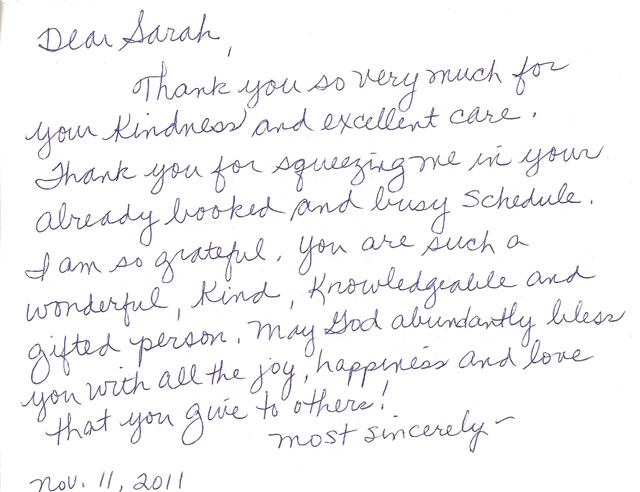 Dear Sarah,
Thank you so very much for
your kindness and excellent care.
Thank you for squeezing me in your
already booked and busy schedule.
I am so grateful. You are such a
wonderful, kind, knowledgeable and
gifted person. May God abundantly bless
you with all the joy, happiness and love
that you give to others!
most sincerely-
Nov. 11, 2011